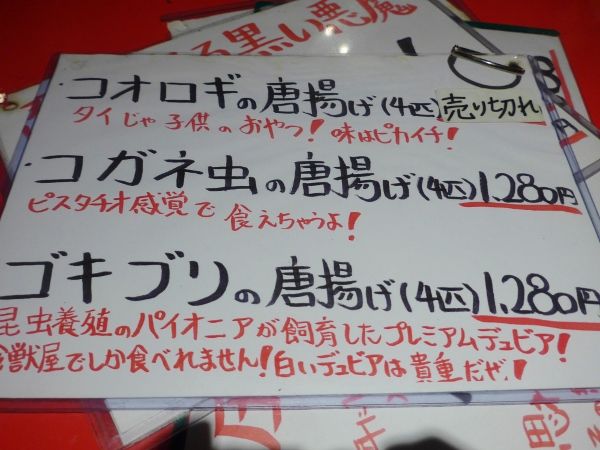 る黒い悪魔
・コオロギの唐揚げ(4匹)売り切れ
タイじゃ子供のおやつ!味はピカイチ!
・コガネ虫の唐揚げ(4匹)1,280円
ピスタチオ感覚で食えちゃうよ!
ゴキブリの唐揚げ(4匹)1,280円
昆虫養殖のパイオニアが飼育したプレミアムデュビア!
獣屋でしか食べれません!白いデュビアは貴重だぜ!